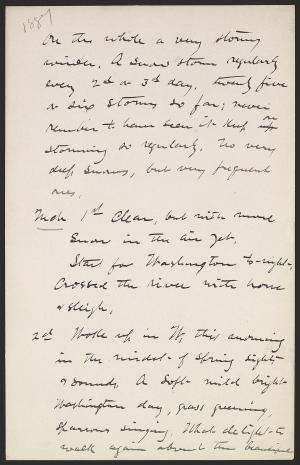 1887
On the whole a very stormy
winter. A snow storm regularly
every 2nd or 3rd day. twenty five
or six storms so far; never
remember to have seen it keep on
storming so regularly. No very
deep snows, but very frequent
ones.
Mch 1st Clear, but with more
snow in the air yet.
Start for Washington to-night.
Crossed the river with horse
& sleigh.
2nd Woke up in W, this morning
in the midst of spring sights
& sounds. A soft mild bright
Washington day, grass greening,
sparrows singing. What delight to
walk again about the beautiful